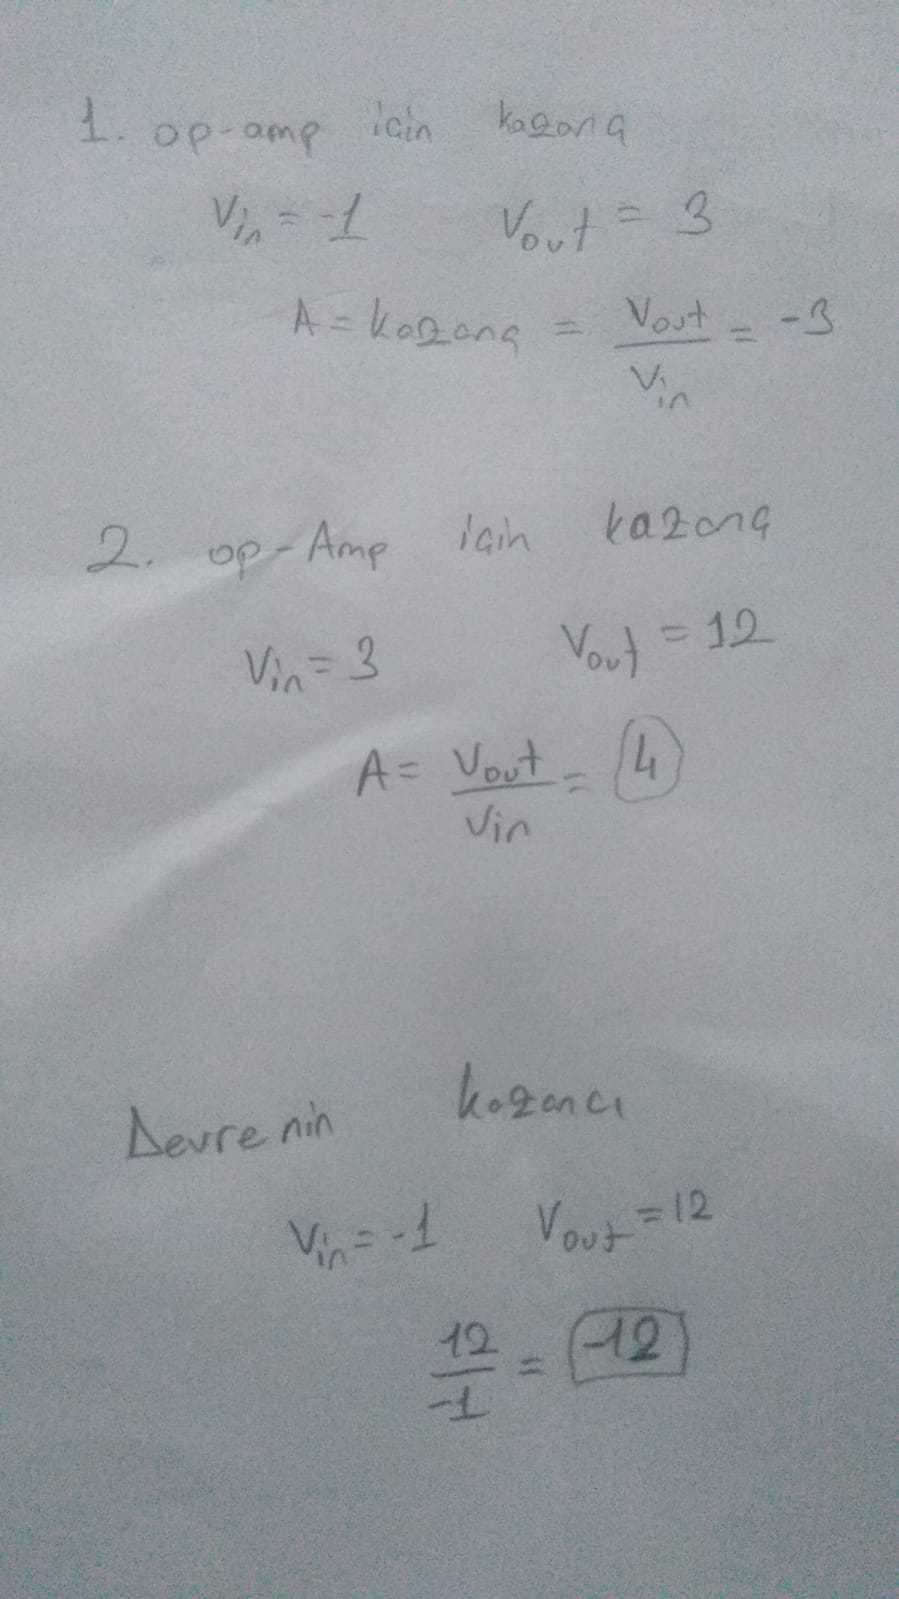 1. op-amp için kazanç
Vin = -1 Vout = 3
A = kazanç = Vout / Vin = -3
2. op-Amp için kazanç
Vin = 3 Vout = 12
A = Vout / Vin = 4
Devrenin kazancı
Vin = -1 Vout = 12
12 / -1 = -12